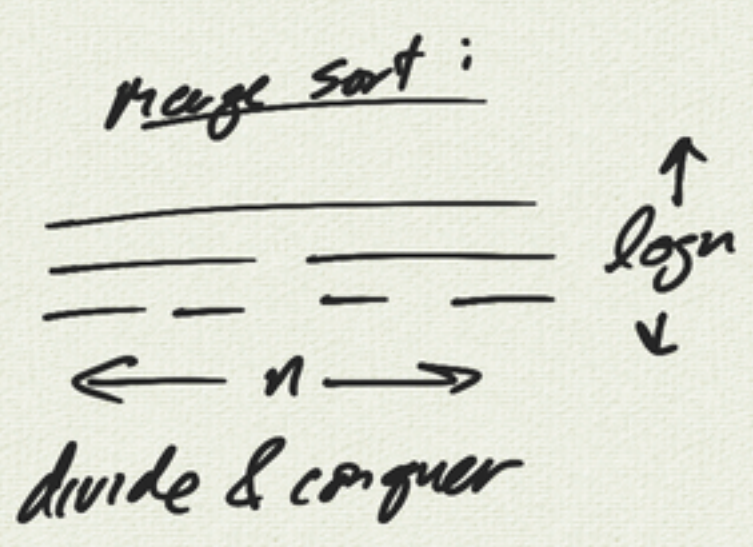 merge sort :
logn
n
divide & conquer